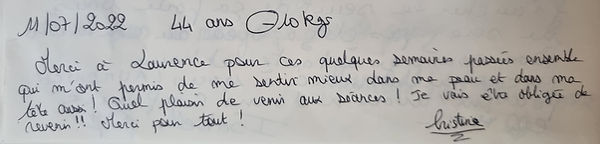 11/07/2022 44 ans ⊖10 kgs
Merci à Laurence pour ces quelques semaines passées ensemble
qui m'ont permis de me sentir mieux dans ma peau et dans ma
tête aussi ! Quel plaisir de venir aux séances ! Je vais être obligée de
revenir !! Merci pour tout !
Cristina